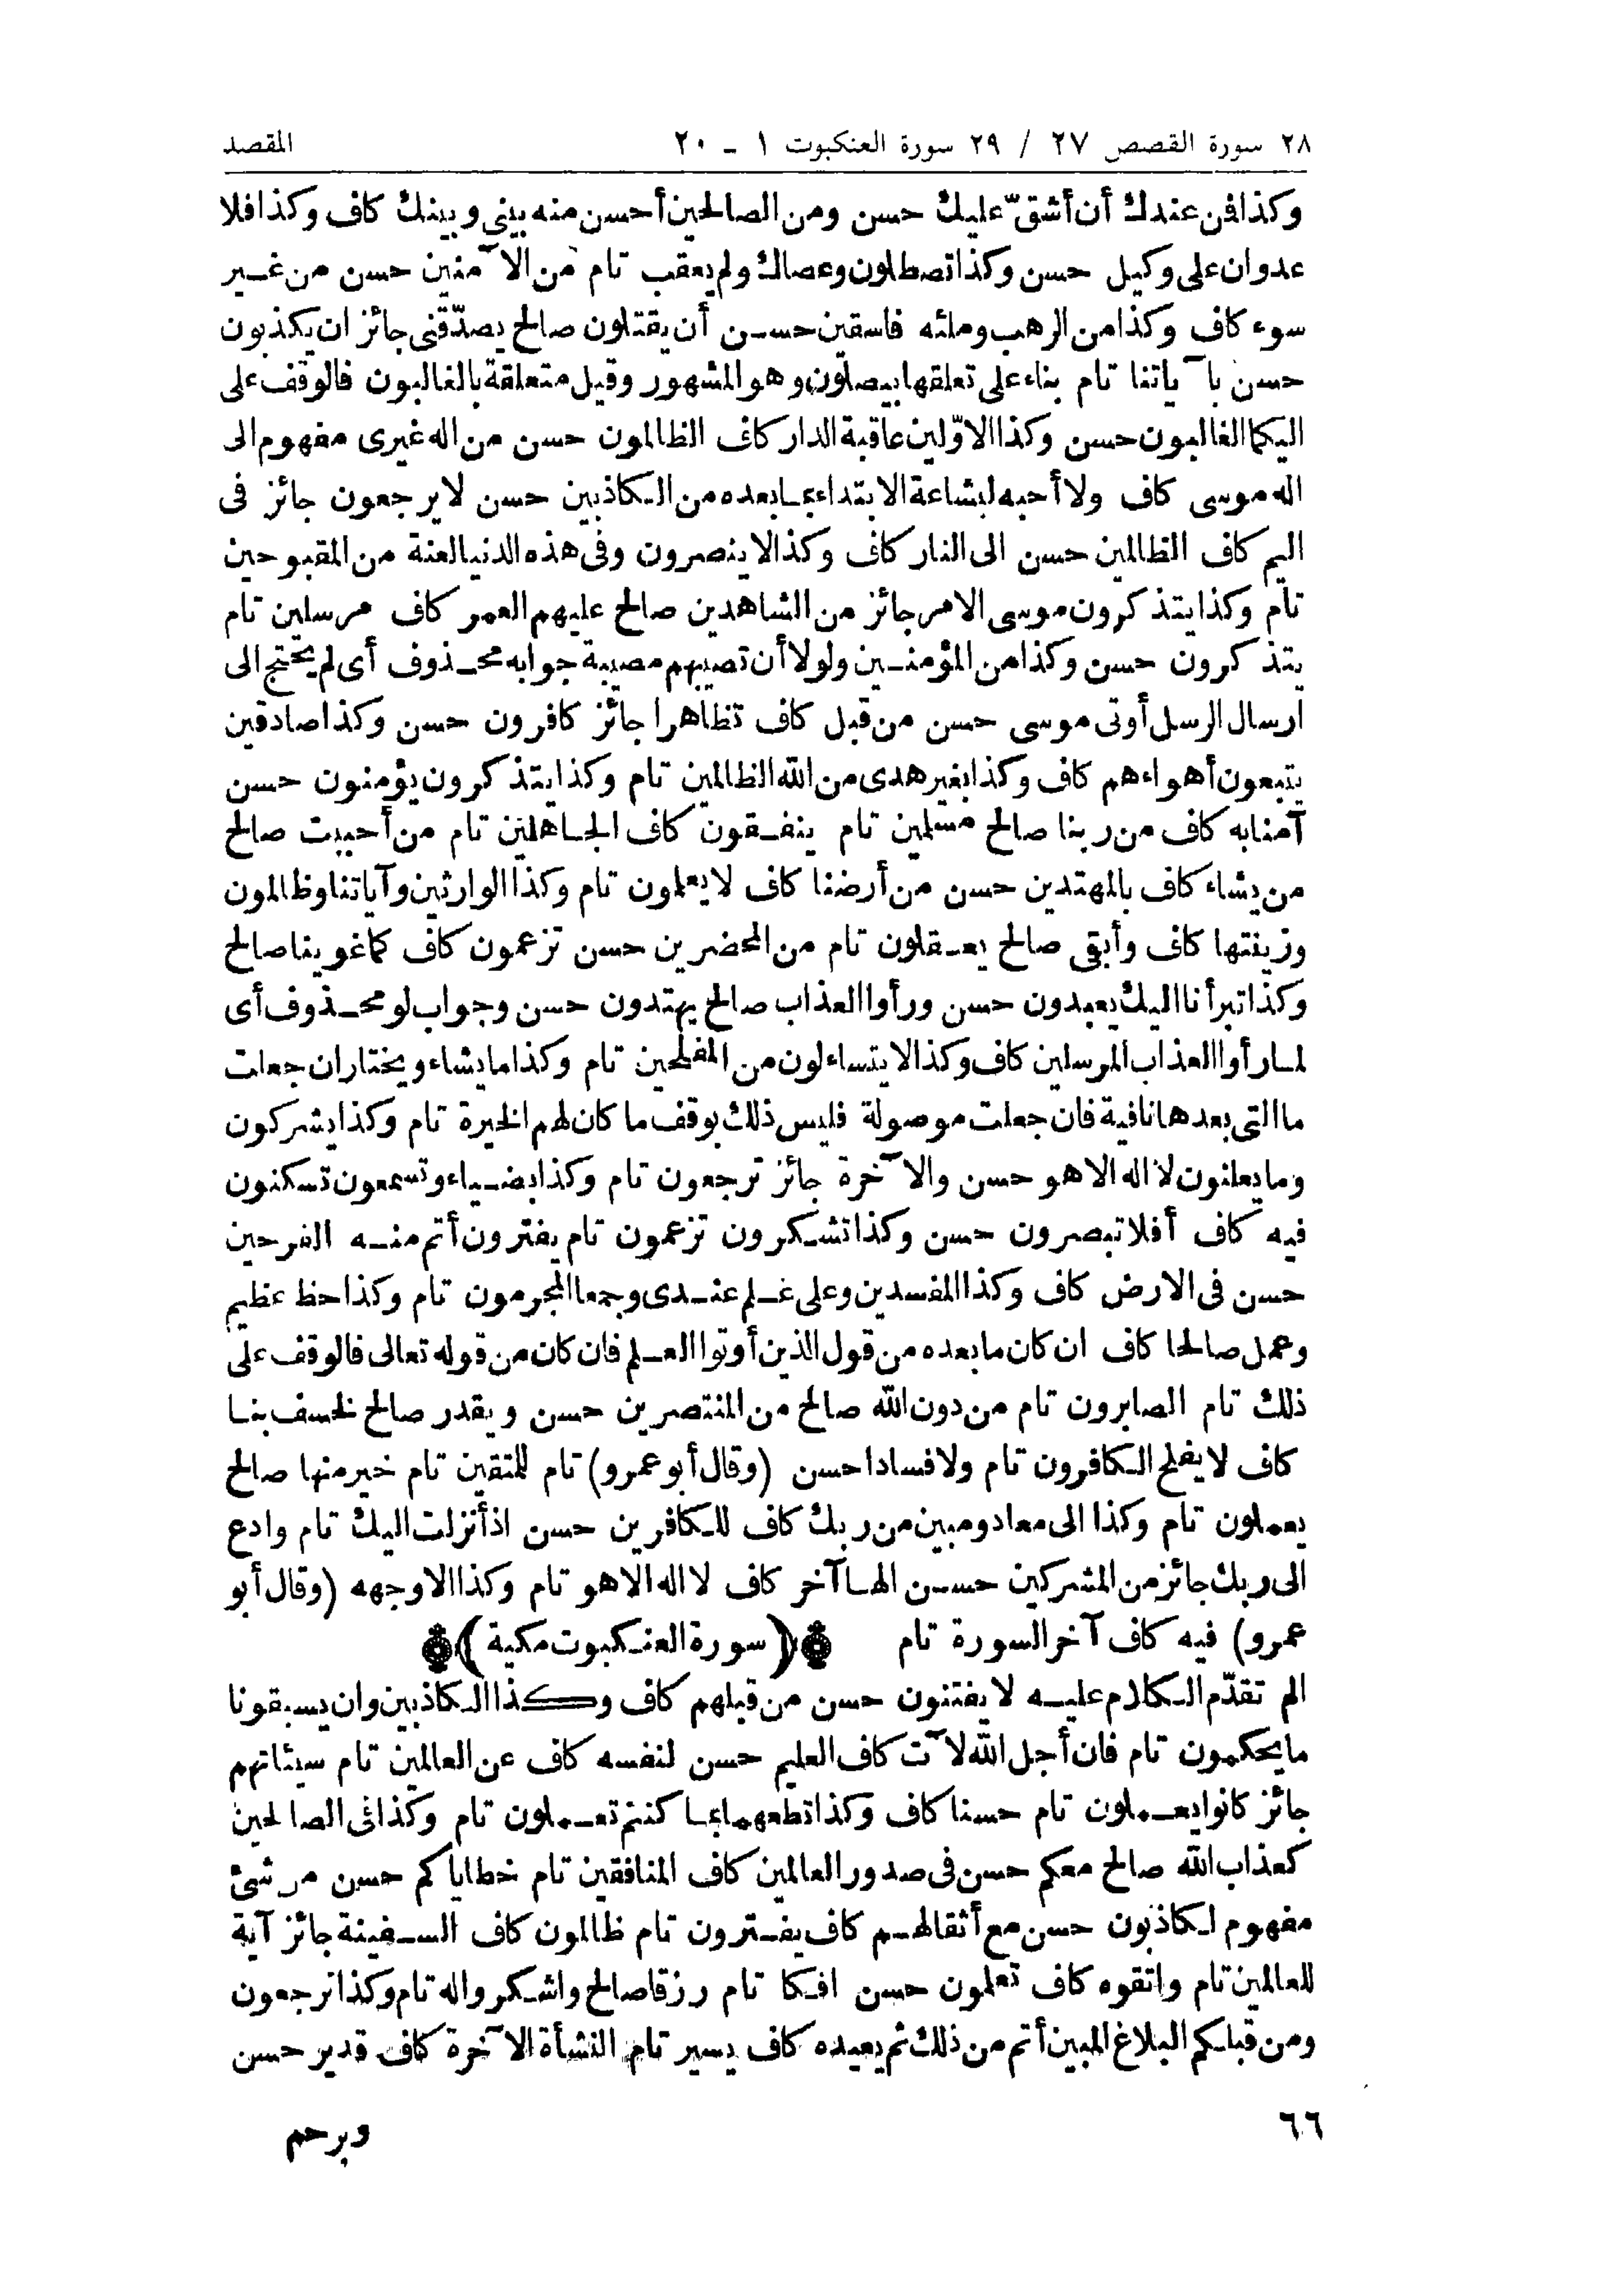 ٢٨ سورة القصص ٢٧ / ٢٩ سورة العنكبوت ١ - ٢٠ المقصد
وكذا فمن عندك أن أشقّ عليك حسن ومن الصالحين أحسن منه بينى وبينك كاف وكذا فلا
عدوان على وكيل حسن وكذا تصطلون وعصاك ولم يعقب تام من الآمنين حسن من غير
سوء كاف وكذا من الرهب وملئه فاسقين حسن أن يقتلون صالح يصدّقنى جائز ان يكذبون
حسن بآياتنا تام بناء على تعلقها بيصلون وهو المشهور وقيل متعلقة بالغالبون فالوقف على
اليكما الغالبون حسن وكذا الاوّلين عاقبة الدار كاف الظالمون حسن من اله غيرى مفهوم الى
اله موسى كاف ولا أحبه لبشاعة الابتداء بما بعده من الكاذبين حسن لا يرجعون جائز فى
اليم كاف الظالمين حسن الى النار كاف وكذا لا ينصرون وفى هذه الدنيا لعنة من المقبوحين
تام وكذا يتذكرون موسى الامر جائز من الشاهدين صالح عليهم العمر كاف مرسلين تام
يتذكرون حسن وكذا من المؤمنين ولولا أن تصيبهم مصيبة جوابه محذوف أى لم يحتج الى
ارسال الرسل أوتى موسى حسن من قبل كاف تظاهرا جائز كافرون حسن وكذا صادقين
يتبعون أهواءهم كاف وكذا بغير هدى من الله الظالمين تام وكذا يتذكرون يؤمنون حسن
آمنا به كاف من ربنا صالح مسلمين تام ينفقون كاف الجاهلين تام من أحببت صالح
من يشاء كاف بالمهتدين حسن من أرضنا كاف لا يعلمون تام وكذا الوارثين وآياتنا وظالمون
وزينتها كاف وأبقى صالح يعقلون تام من المحضرين حسن تزعمون كاف كما غوينا صالح
وكذا تبرأنا اليك يعبدون حسن ورأوا العذاب صالح يهتدون حسن وجواب لو محذوف أى
لما رأوا العذاب المرسلين كاف وكذا لا يتساءلون من المفلحين تام وكذا ما يشاء ويختار ان جعلت
ما التى بعدها نافية فان جعلت موصولة فليس ذلك بوقف ما كان لهم الخيرة تام وكذا يشركون
وما يعلنون لا اله الا هو حسن والآخرة جائز ترجعون تام وكذا بضياء وتسمعون تسكنون
فيه كاف أفلا تبصرون حسن وكذا تشكرون تزعمون تام يفترون أتم منه الفرحين
حسن فى الارض كاف وكذا المفسدين وعلى علم عندى وجمعا المجرمون تام وكذا حظ عظيم
وعمل صالحا كاف ان كان ما بعده من قول الذين أوتوا العلم فان كان من قوله تعالى فالوقف على
ذلك تام الصابرون تام من دون الله صالح من المنتصرين حسن ويقدر صالح لخسف بنا
كاف لا يفلح الكافرون تام ولا فسادا حسن (وقال أبو عمرو) تام للمتقين تام خير منها صالح
يعملون تام وكذا الى معاد ومبين من ربك كاف للكافرين حسن اذ أنزلت اليك تام وادع
الى ربك جائز من المشركين حسن الها آخر كاف لا اله الا هو تام وكذا الا وجهه (وقال أبو
عمرو) فيه كاف آخر السورة تام (سورة العنكبوت مكية)
الم تقدّم الكلام عليه لا يفتنون حسن من قبلهم كاف وكذا الكاذبين وان يسبقونا
ما يحكمون تام فان أجل الله لآت كاف العليم حسن لنفسه كاف عن العالمين تام سيئاتهم
جائز كانوا يعملون تام حسنا كاف وكذا تطعهما بما كنتم تعملون تام وكذا فى الصالحين
كعذاب الله صالح معكم حسن فى صدور العالمين كاف المنافقين تام خطاياكم حسن من شئ
مفهوم لكاذبون حسن مع أثقالهم كاف يفترون تام ظالمون كاف السفينة جائز آية
للعالمين تام واتقوه كاف تعلمون حسن افكا تام رزقا صالح واشكروا له تام وكذا ترجعون
ومن قبلكم البلاغ المبين أتم من ذلك ثم يعيده كاف يسير تام النشأة الآخرة كاف قدير حسن
٦٦ ويرحم